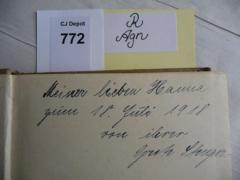 CJ Depot
772
R
Agn
Meiner lieben Hanna
zum 18. Juli 1918
von ihrer